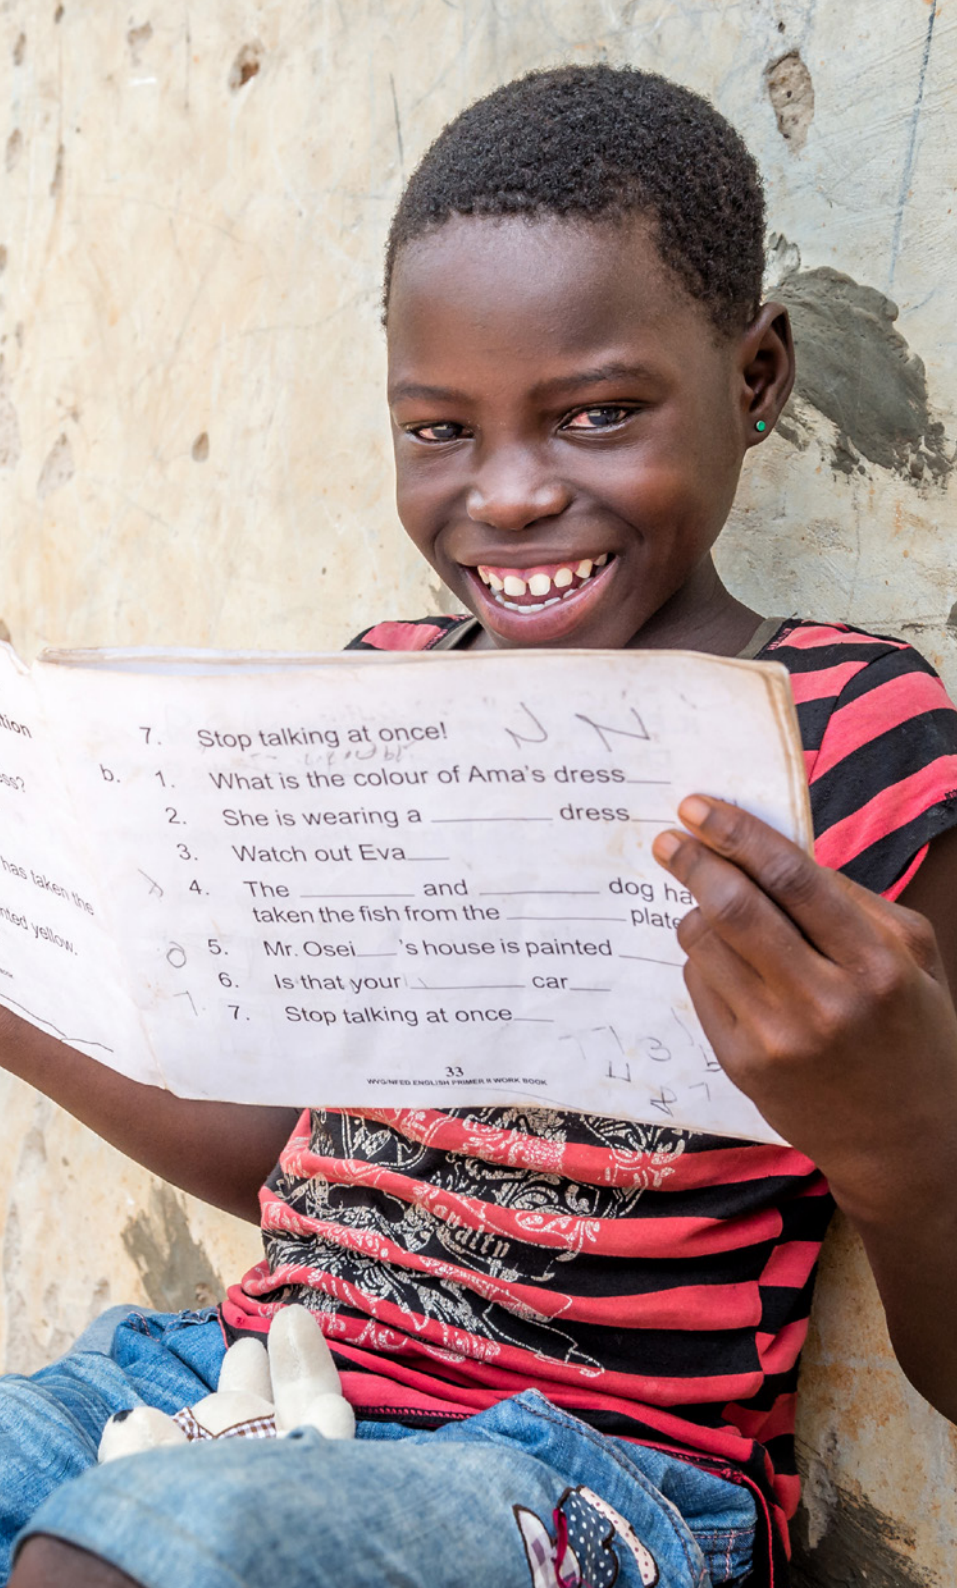 tion
ess?
has taken the
nted yellow.
7. Stop talking at once! N N
b. 1. What is the colour of Ama's dress___
2. She is wearing a _________ dress___
3. Watch out Eva___
4. The _________ and _________ dog ha
taken the fish from the _________ plate
5. Mr. Osei___ 's house is painted _____
6. Is that your _________ car___
7. Stop talking at once___
3
4
7
33
WVG/NFED ENGLISH PRIMER II WORK BOOK
Royalty